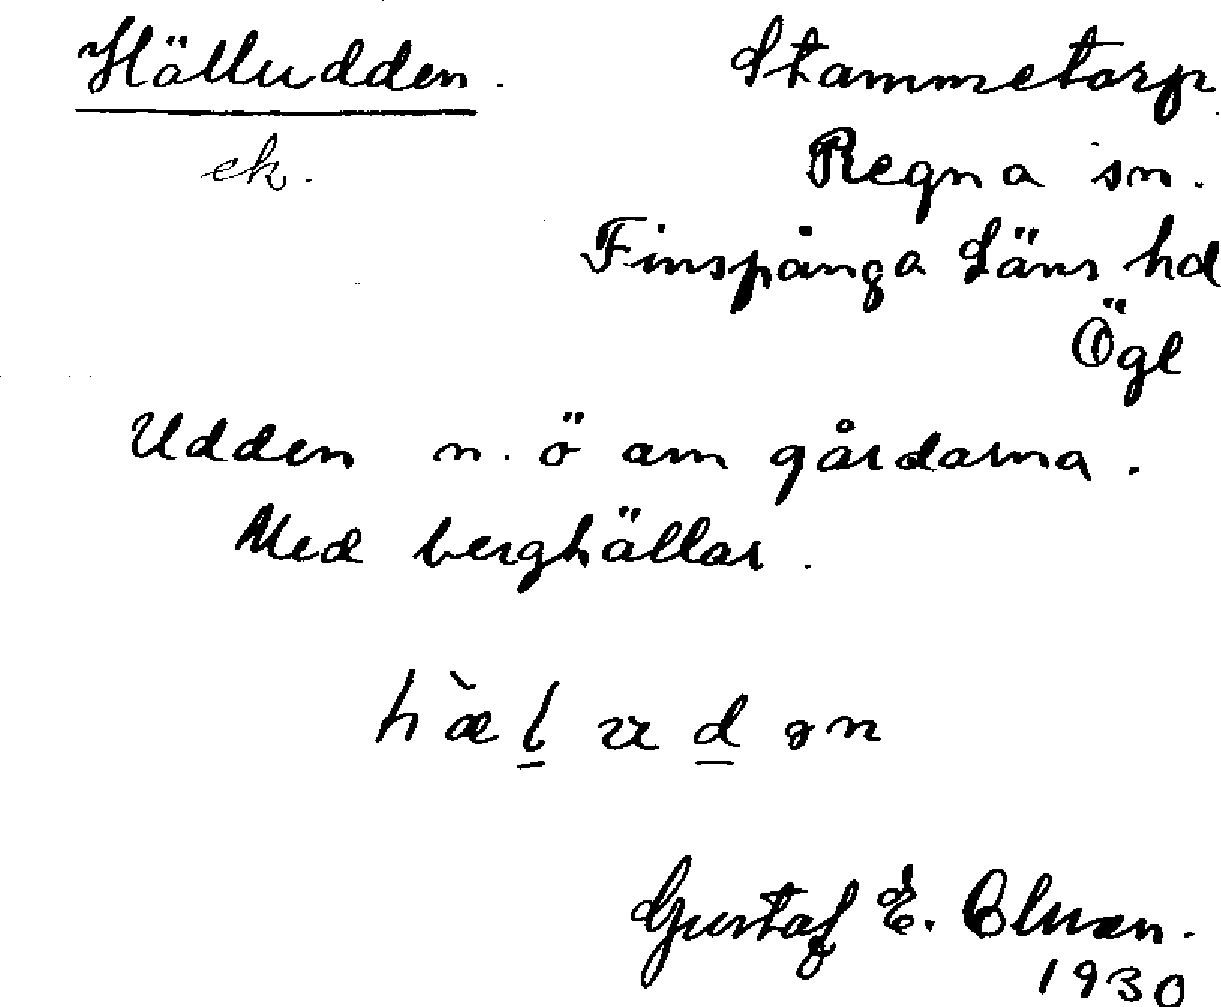 Hälludden. Stammetorp
ek. Regna sn.
Finspånga Läns hd
Ögl
Udden n. ö om gårdarna.
Med berghällar.
Gustaf E.
1930